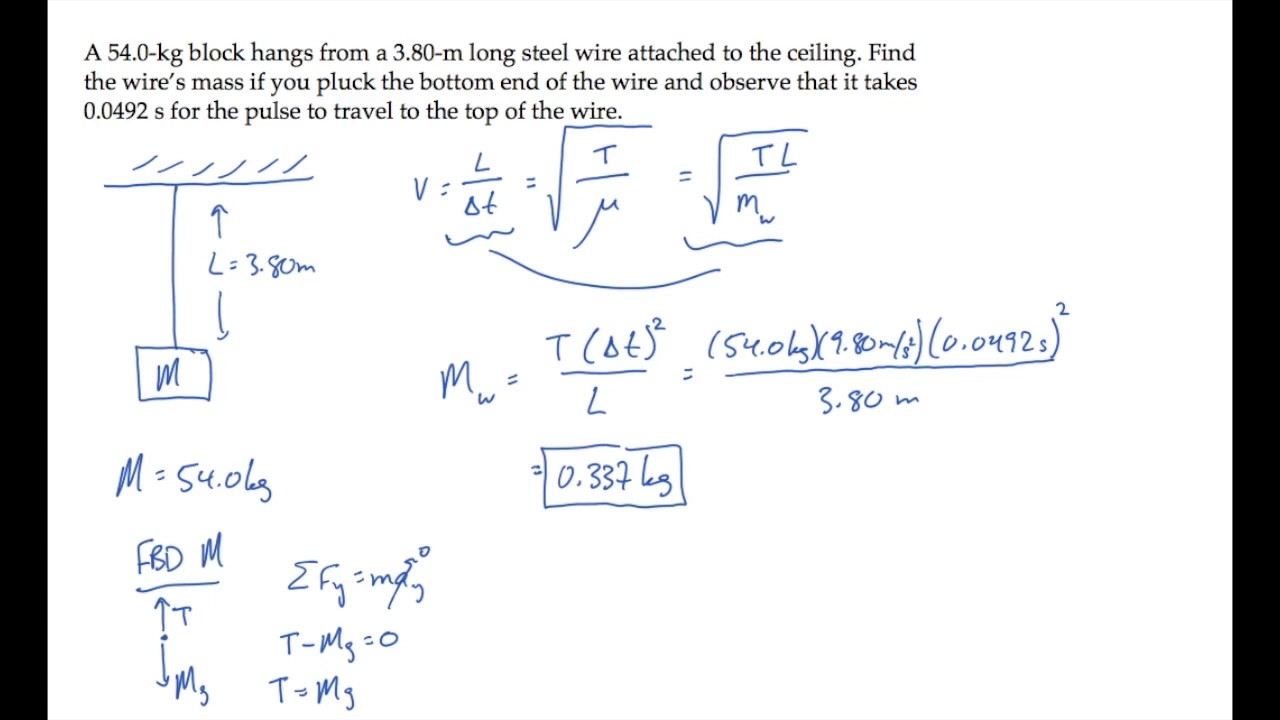 A 54.0-kg block hangs from a 3.80-m long steel wire attached to the ceiling. Find
the wire's mass if you pluck the bottom end of the wire and observe that it takes
0.0492 s for the pulse to travel to the top of the wire.
V = L/Δt = √(T/μ) = √(TL/m_w)
L = 3.80m
M
M_w = T(Δt)²/L = (54.0kg)(9.80m/s²)(0.0492s)²/3.80 m
= 0.337 kg
M = 54.0kg
FBD M
T
Mg
ΣFy = may 0
T-Mg = 0
T = Mg